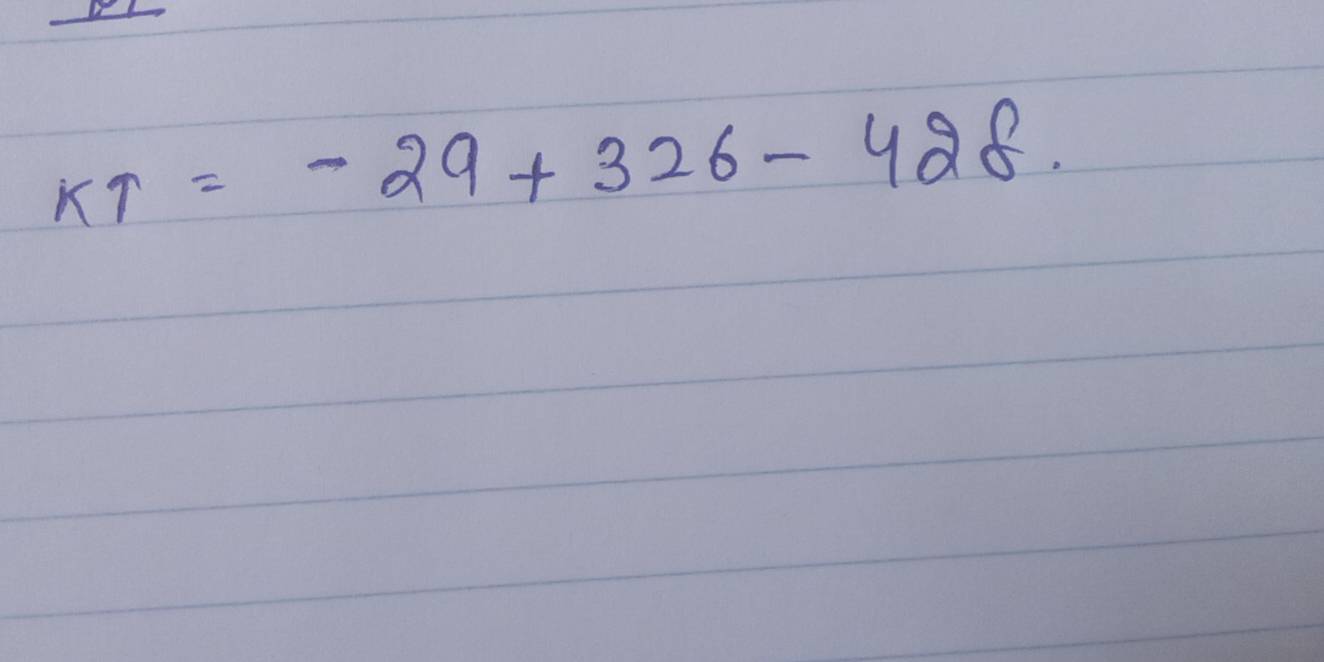 KT = - 29 + 326 - 428.